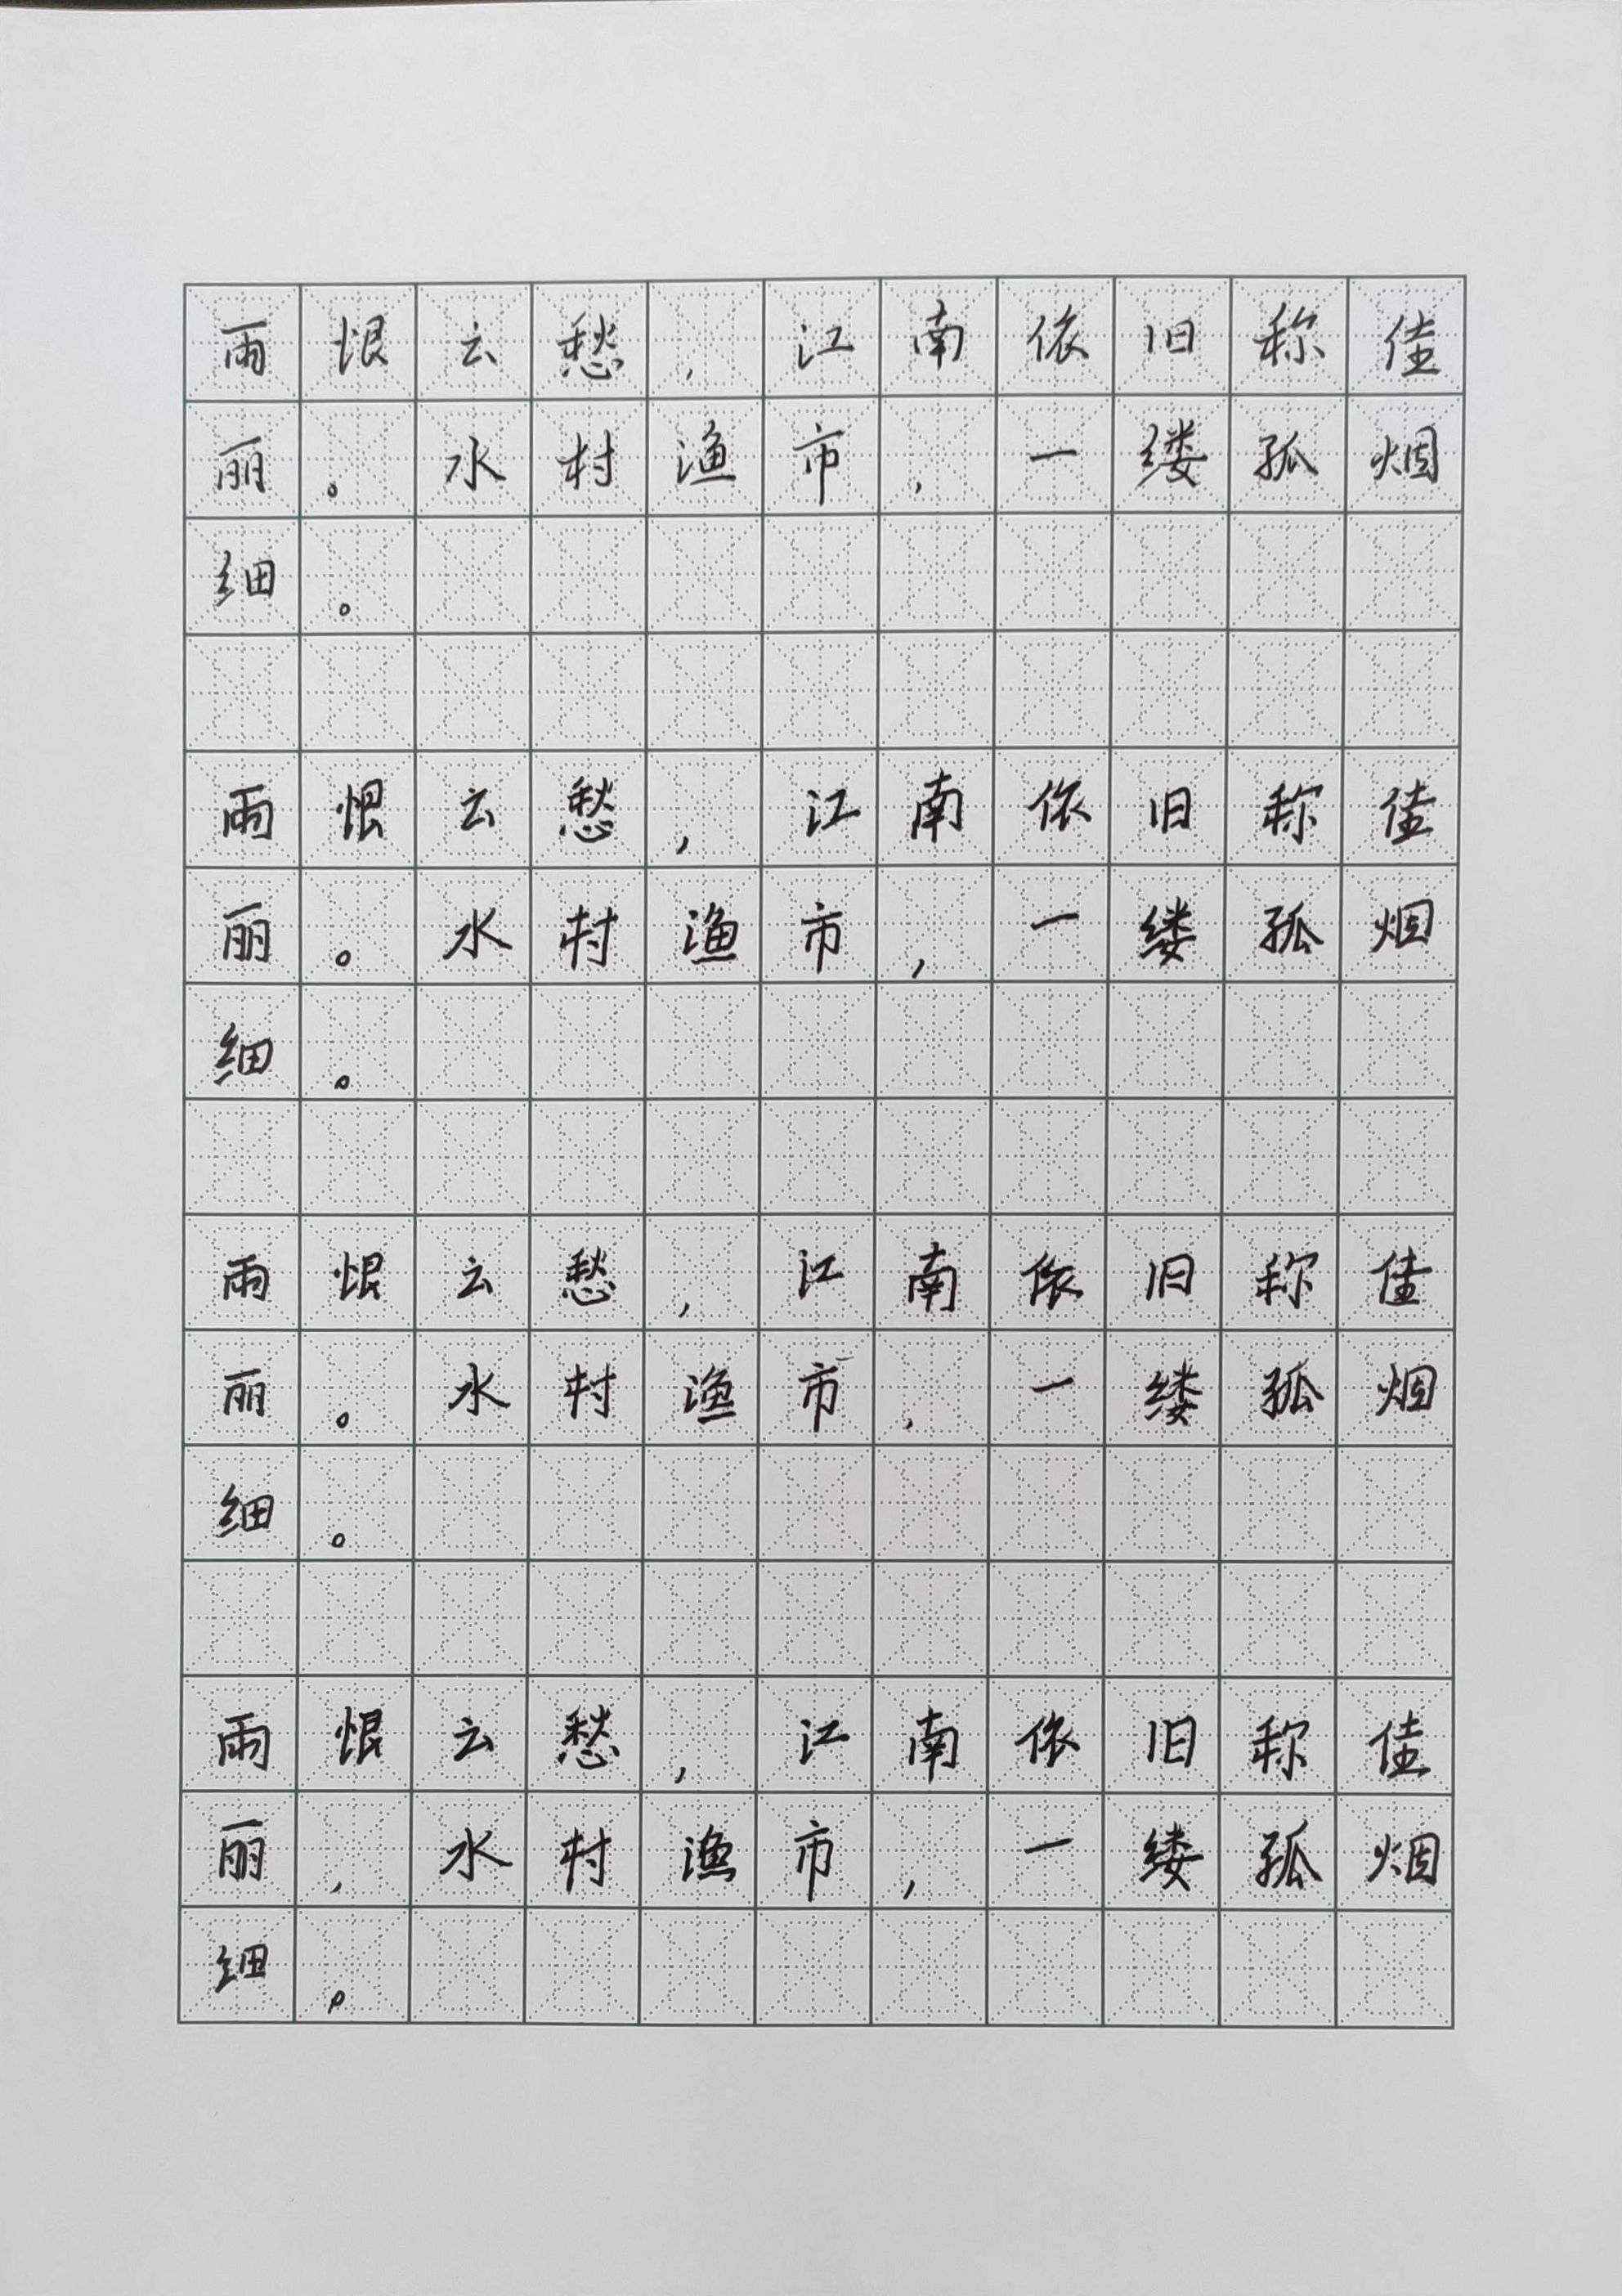 雨恨云愁，江南依旧称佳
丽。水村渔市，一缕孤烟
细。
雨恨云愁，江南依旧称佳
丽。水村渔市，一缕孤烟
细。
雨恨云愁，江南依旧称佳
丽。水村渔市，一缕孤烟
细。
雨恨云愁，江南依旧称佳
丽，水村渔市，一缕孤烟
细。